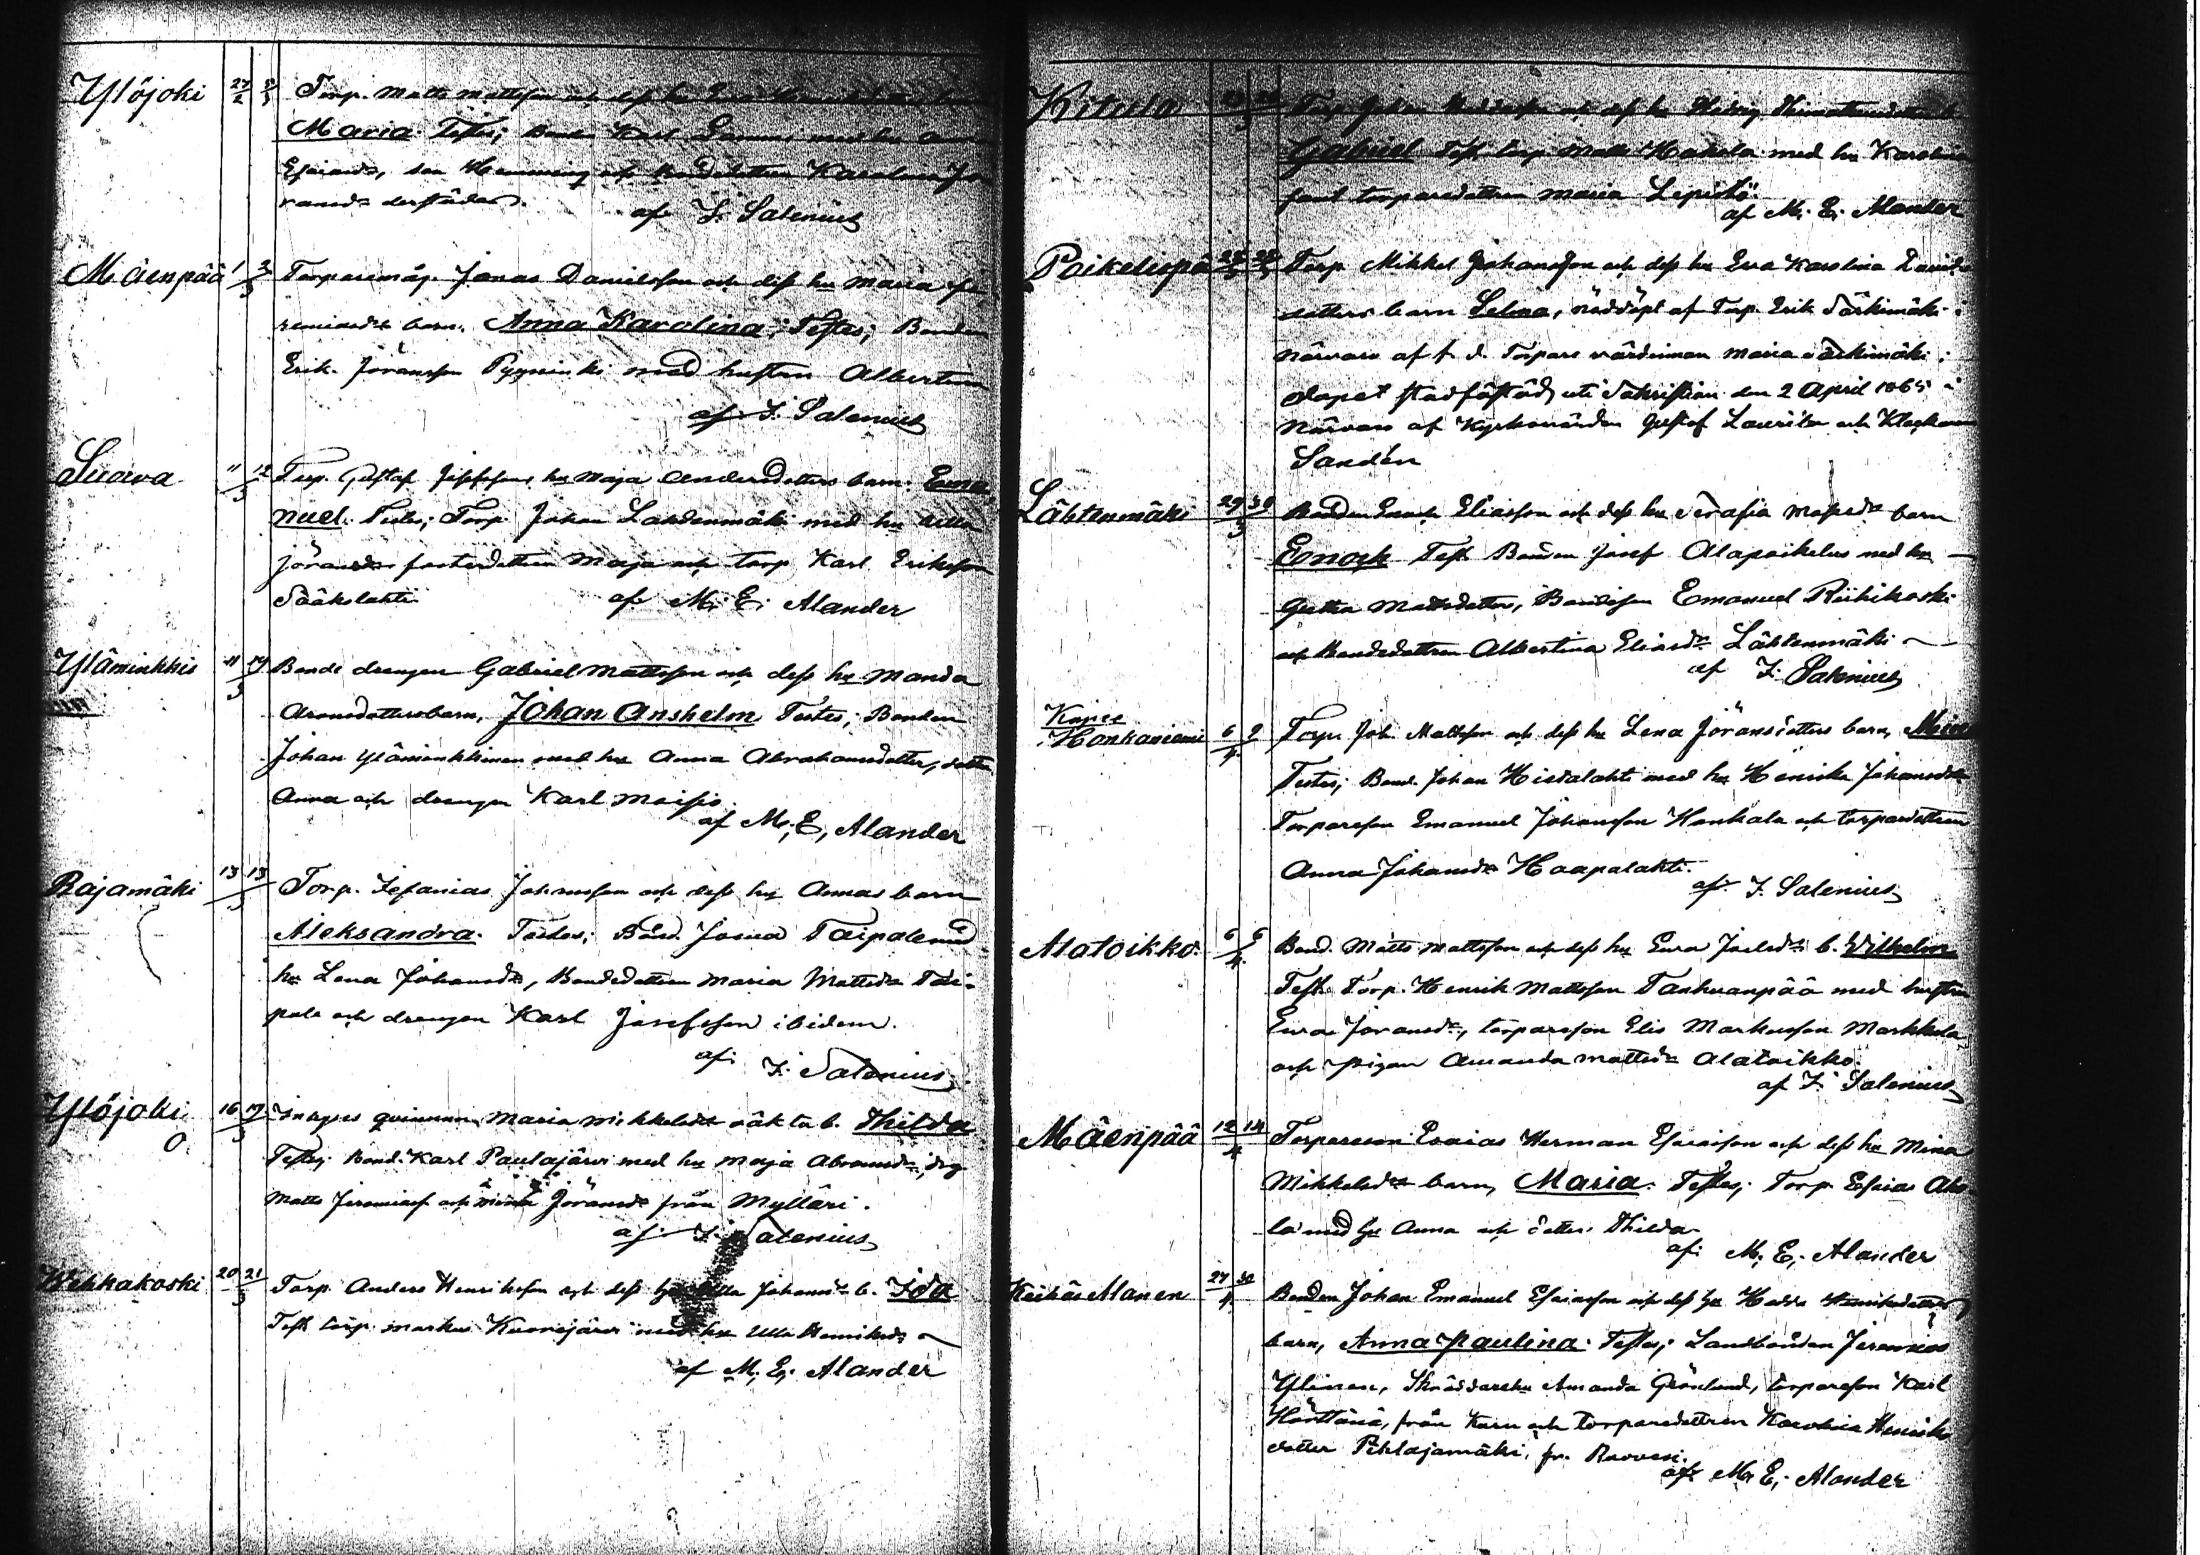 Ylöjoki 27/2 5/3 Torp. Matts Mattsson och dess hu Eva
Maria. Testes; Bonden Karl med hu Anna
Esaiasdr, son Henning och Karolina Jö
ransdr derstädes.
af J. Salenius
Mäenpää 1/3 Torparemåg Jonas Danielsson och dess hu Maria Je
remiasdr barn, Anna Karolina; Testes; Bonden
Erik Jöransson Pynninki med hustru Albertina
af J. Salenius
Suova 11 12/3 Torp. Gustaf Josefsson, hu Maja Andersdotters barn: Ema
nuel. Testes; Torp. Johan Lahdenmäki med hu Ulla
Jöransdr fosterdottren Maja och torp Karl Eriksson
Sääkslahti
af M. E. Alander
Yläminkkis 11 19/3 Bonde drengen Gabriel Mattsson och dess hu Manda
Aronsdottersbarn, Johan Anshelm Testes; Bonden
Johan Yläminkkinen med hu Anna Abrahamsdotter, dotter
Anna och drengen Karl Moisio.
af M. E. Alander
Rajamäki 13 13/3 Torp. Zefanias Johansson och dess hu Annas barn
Aleksandra. Testes; Bond. Josua Taipale med
hu Lena Johansdr, Bondedottren Maria Mattsdr Tai-
pale och drengen Karl Josefsson ibidem.
af J. Salenius
Ylöjoki 16 19/3 Inhyses qvinnan Maria Mikkelsdr oäkta b. Thilda
o. Testes; Bond. Karl Paulajärvi med hu Maja Abramsdr, drg
Matts Jeremiass och Mina Jöransdr från Mylläri.
af J. Salenius
Wehkakoski 20 21/3 Torp. Anders Henriksson och dess hu Ulla Johansdr b. Ida
Test torp. Markus Kuorejärvi med hu Ulla Henriksdr
af M. E. Alander
Kitula Torp. Johan och dess hu Hedvig
Gabriel Test. torp. Matts Hakola med hu Karolina
samt torparedottren Maria Lepistö.
af M. E. Alander
Poikelispä Torp. Mikkel Johansson och dess hu Eva Karolina
dotters barn Selma, nöddöpt af Torp. Erik Särkimäki i
närvaro af f. d. Torpare värdinnan Maria Särkimäki;
dopet stadfästad uti Sakristian den 2 April 1865 i
närvaro af Kyrkovärden Gustaf Laurila och Klockaren
Sandén
Lähtenmäki 29 30/3 Bonden Enok Eliasson och dess hu Serafia barn
Enock Test Bonden Josef Alapoikelus med hu
Greta Mattsdotter, Bondeson Emanuel Riihikoski
och Bondedottren Albertina Eliasdr Lähtenmäki
af J. Salenius
Honkaniemi 6 9/4 Torp. Joh. Mattsson och dess hu Lena Jöransdotters barn,
Testes; Bond. Johan Hietalahti med hu Henrika Johansdr
Torpareson Emanuel Johansson Honkala och torparedottren
Anna Johansdr Haapalahti.
af J. Salenius
Alatoikko. 6 6/4 Bond. Matts Mattsson och dess hu Eva Joelsdr b. Wilhelm
Test. Torp. Henrik Mattsson Tanhuanpää med hustru
Eva Jöransdr, torpareson Elis Markusson Markkula
och pigan Amanda Mattsdr Alatoikko.
af J. Salenius
Mäenpää 12 14/4 Torpareson Esaias Herman Esaiasson och dess hu Mina
Mikkelsdr barn, Maria. Testes; Torp. Esaias Aho-
la med hu Anna och dotter Thilda
af M. E. Alander
Keihäs Manen 27 30/4 Bonden Johan Emanuel Esaiasson och dess hu Hedda Henriksdotters
barn, Anna Paulina. Testes; Landbonden Jeremias
Ylinen, Skräddarehu Amanda Grönlund, torpareson Karl
Härttänä, från Keuru och torparedottren Karolina Henriks
dotter Pihlajamäki, fr. Ruovesi.
af M. E. Alander